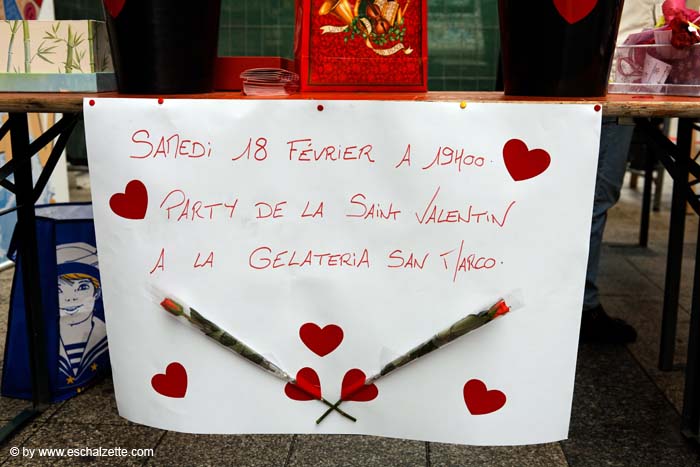 SAMEDI 18 FÉVRIER A 19H00.
PARTY DE LA SAINT VALENTIN
A LA GELATERIA SAN MARCO.
© by www.eschalzette.com